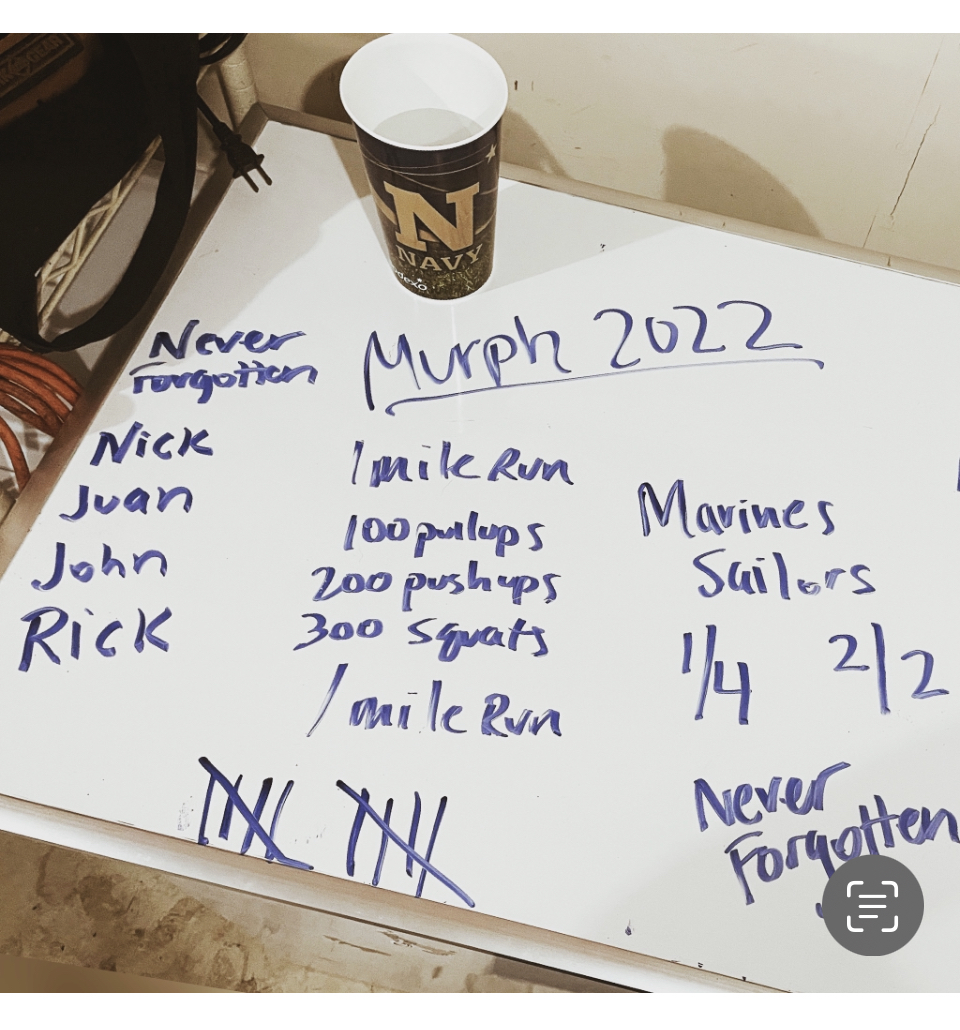 N
NAVY
Murph 2022
Never
Forgotten
Nick
Juan
John
Rick
1 mile Run
100 pullups
200 pushups
300 squats
1 mile Run
Marines
Sailors
1/4 2/2
Never
Forgotten